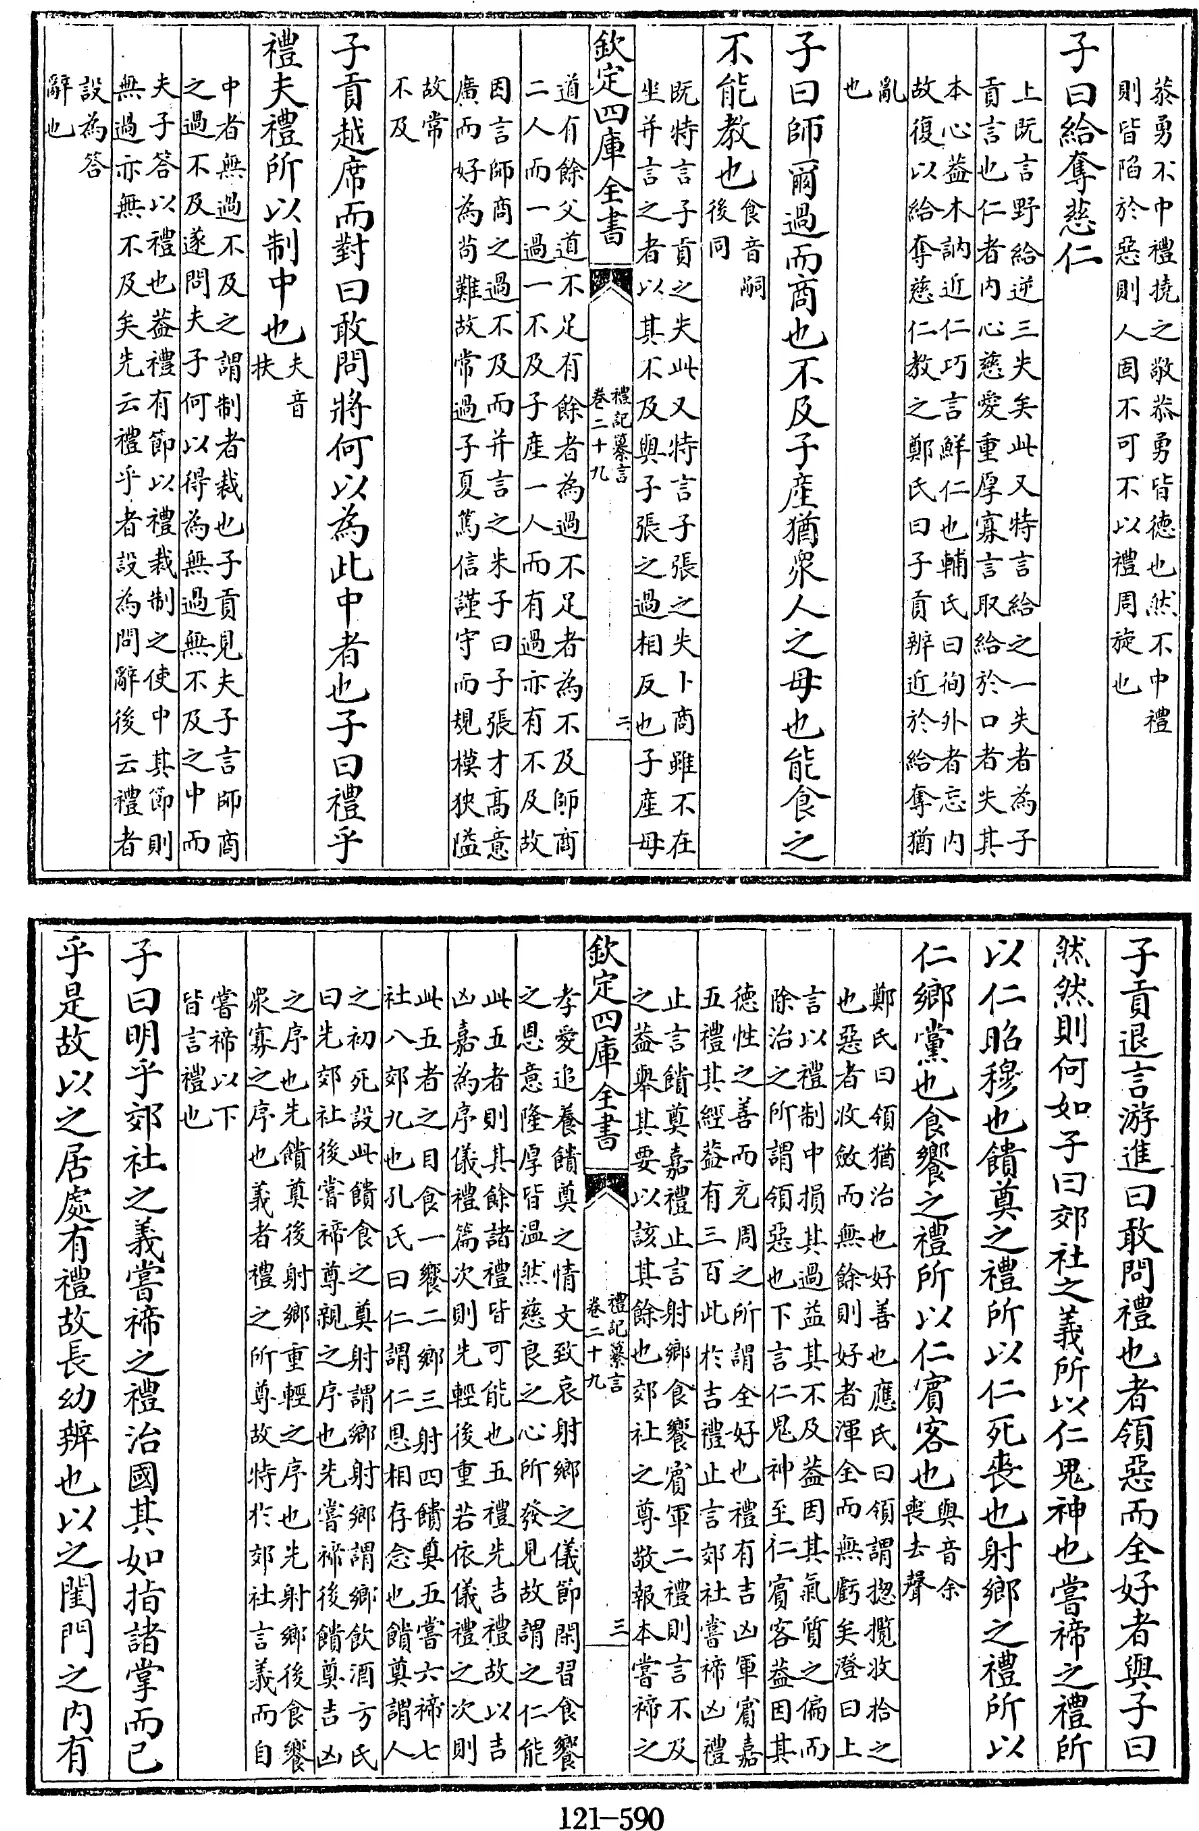 恭勇不中禮撓之敬恭勇皆德也然不中禮
則皆陷於惡則人固不可不以禮周旋也
子曰給奪慈仁
上既言野給逆三失矣此又特言給之一失者為子
貢言也仁者内心慈愛重厚寡言取給於口者失其
本心葢木訥近仁巧言鮮仁也輔氏曰徇外者忘内
故復以給奪慈仁教之鄭氏曰子貢辨近於給奪猶
亂
也
子曰師爾過而商也不及子產猶衆人之母也能食之
不能教也
食音嗣
後同
既特言子貢之失此又特言子張之失卜商雖不在
坐并言之者以其不及與子張之過相反也子產母
欽定四庫全書
禮記纂言
卷二十九
二
道有餘父道不足有餘者為過不足者為不及師商
二人而一過一不及子產一人而有過亦有不及故
因言師商之過不及而并言之朱子曰子張才髙意
廣而好為苟難故常過子夏篤信謹守而規模狹隘
故常
不及
子貢越席而對曰敢問將何以為此中者也子曰禮乎
禮夫禮所以制中也
夫音
扶
中者無過不及之謂制者裁也子貢見夫子言師商
之過不及遂問夫子何以得為無過無不及之中而
夫子答以禮也葢禮有節以禮裁制之使中其節則
無過亦無不及矣先云禮乎者設為問辭後云禮者
設為答
辭也
子貢退言游進曰敢問禮也者領惡而全好者與子曰
然然則何如子曰郊社之義所以仁鬼神也嘗禘之禮所
以仁昭穆也饋奠之禮所以仁死喪也射鄉之禮所以
仁鄉黨也食饗之禮所以仁賓客也
與音余
喪去聲
鄭氏曰領猶治也好善也應氏曰領謂揔攬收拾之
也惡者收斂而無餘則好者渾全而無虧矣澄曰上
言以禮制中損其過益其不及葢因其氣質之偏而
除治之所謂領惡也下言仁鬼神至仁賓客葢因其
德性之善而充周之所謂全好也禮有吉凶軍賓嘉
五禮其經葢有三百此於吉禮止言郊社嘗禘凶禮
止言饋奠嘉禮止言射鄉食饗賓軍二禮則言不及
之葢舉其要以該其餘也郊社之尊敬報本嘗禘之
欽定四庫全書
禮記纂言
卷二十九
三
孝愛追養饋奠之情文致哀射鄉之儀節閑習食饗
之恩意隆厚皆温然慈良之心所發見故謂之仁能
此五者則其餘諸禮皆可能也五禮先吉禮故以吉
凶嘉為序儀禮篇次則先輕後重若依儀禮之次則
此五者之目食一饗二鄉三射四饋奠五嘗六禘七
社八郊九也孔氏曰仁謂仁恩相存念也饋奠謂人
之初死設此饋食之奠射謂鄉射鄉謂鄉飲酒方氏
曰先郊社後嘗禘尊親之序也先嘗禘後饋奠吉凶
之序也先饋奠後射鄉重輕之序也先射鄉後食饗
衆寡之序也義者禮之所尊故特於郊社言義而自
嘗禘以下
皆言禮也
子曰明乎郊社之義嘗禘之禮治國其如指諸掌而已
乎是故以之居處有禮故長幼辨也以之閨門之内有
121-590